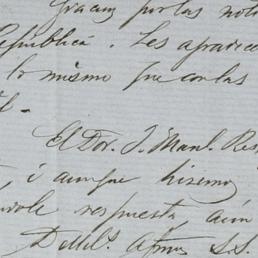 Gracias por las noti
República. Les aparece
lo mismo que con las
El Dor. J. Manl. Res
, i aunque hizemos
respuesta, aún
S.S.